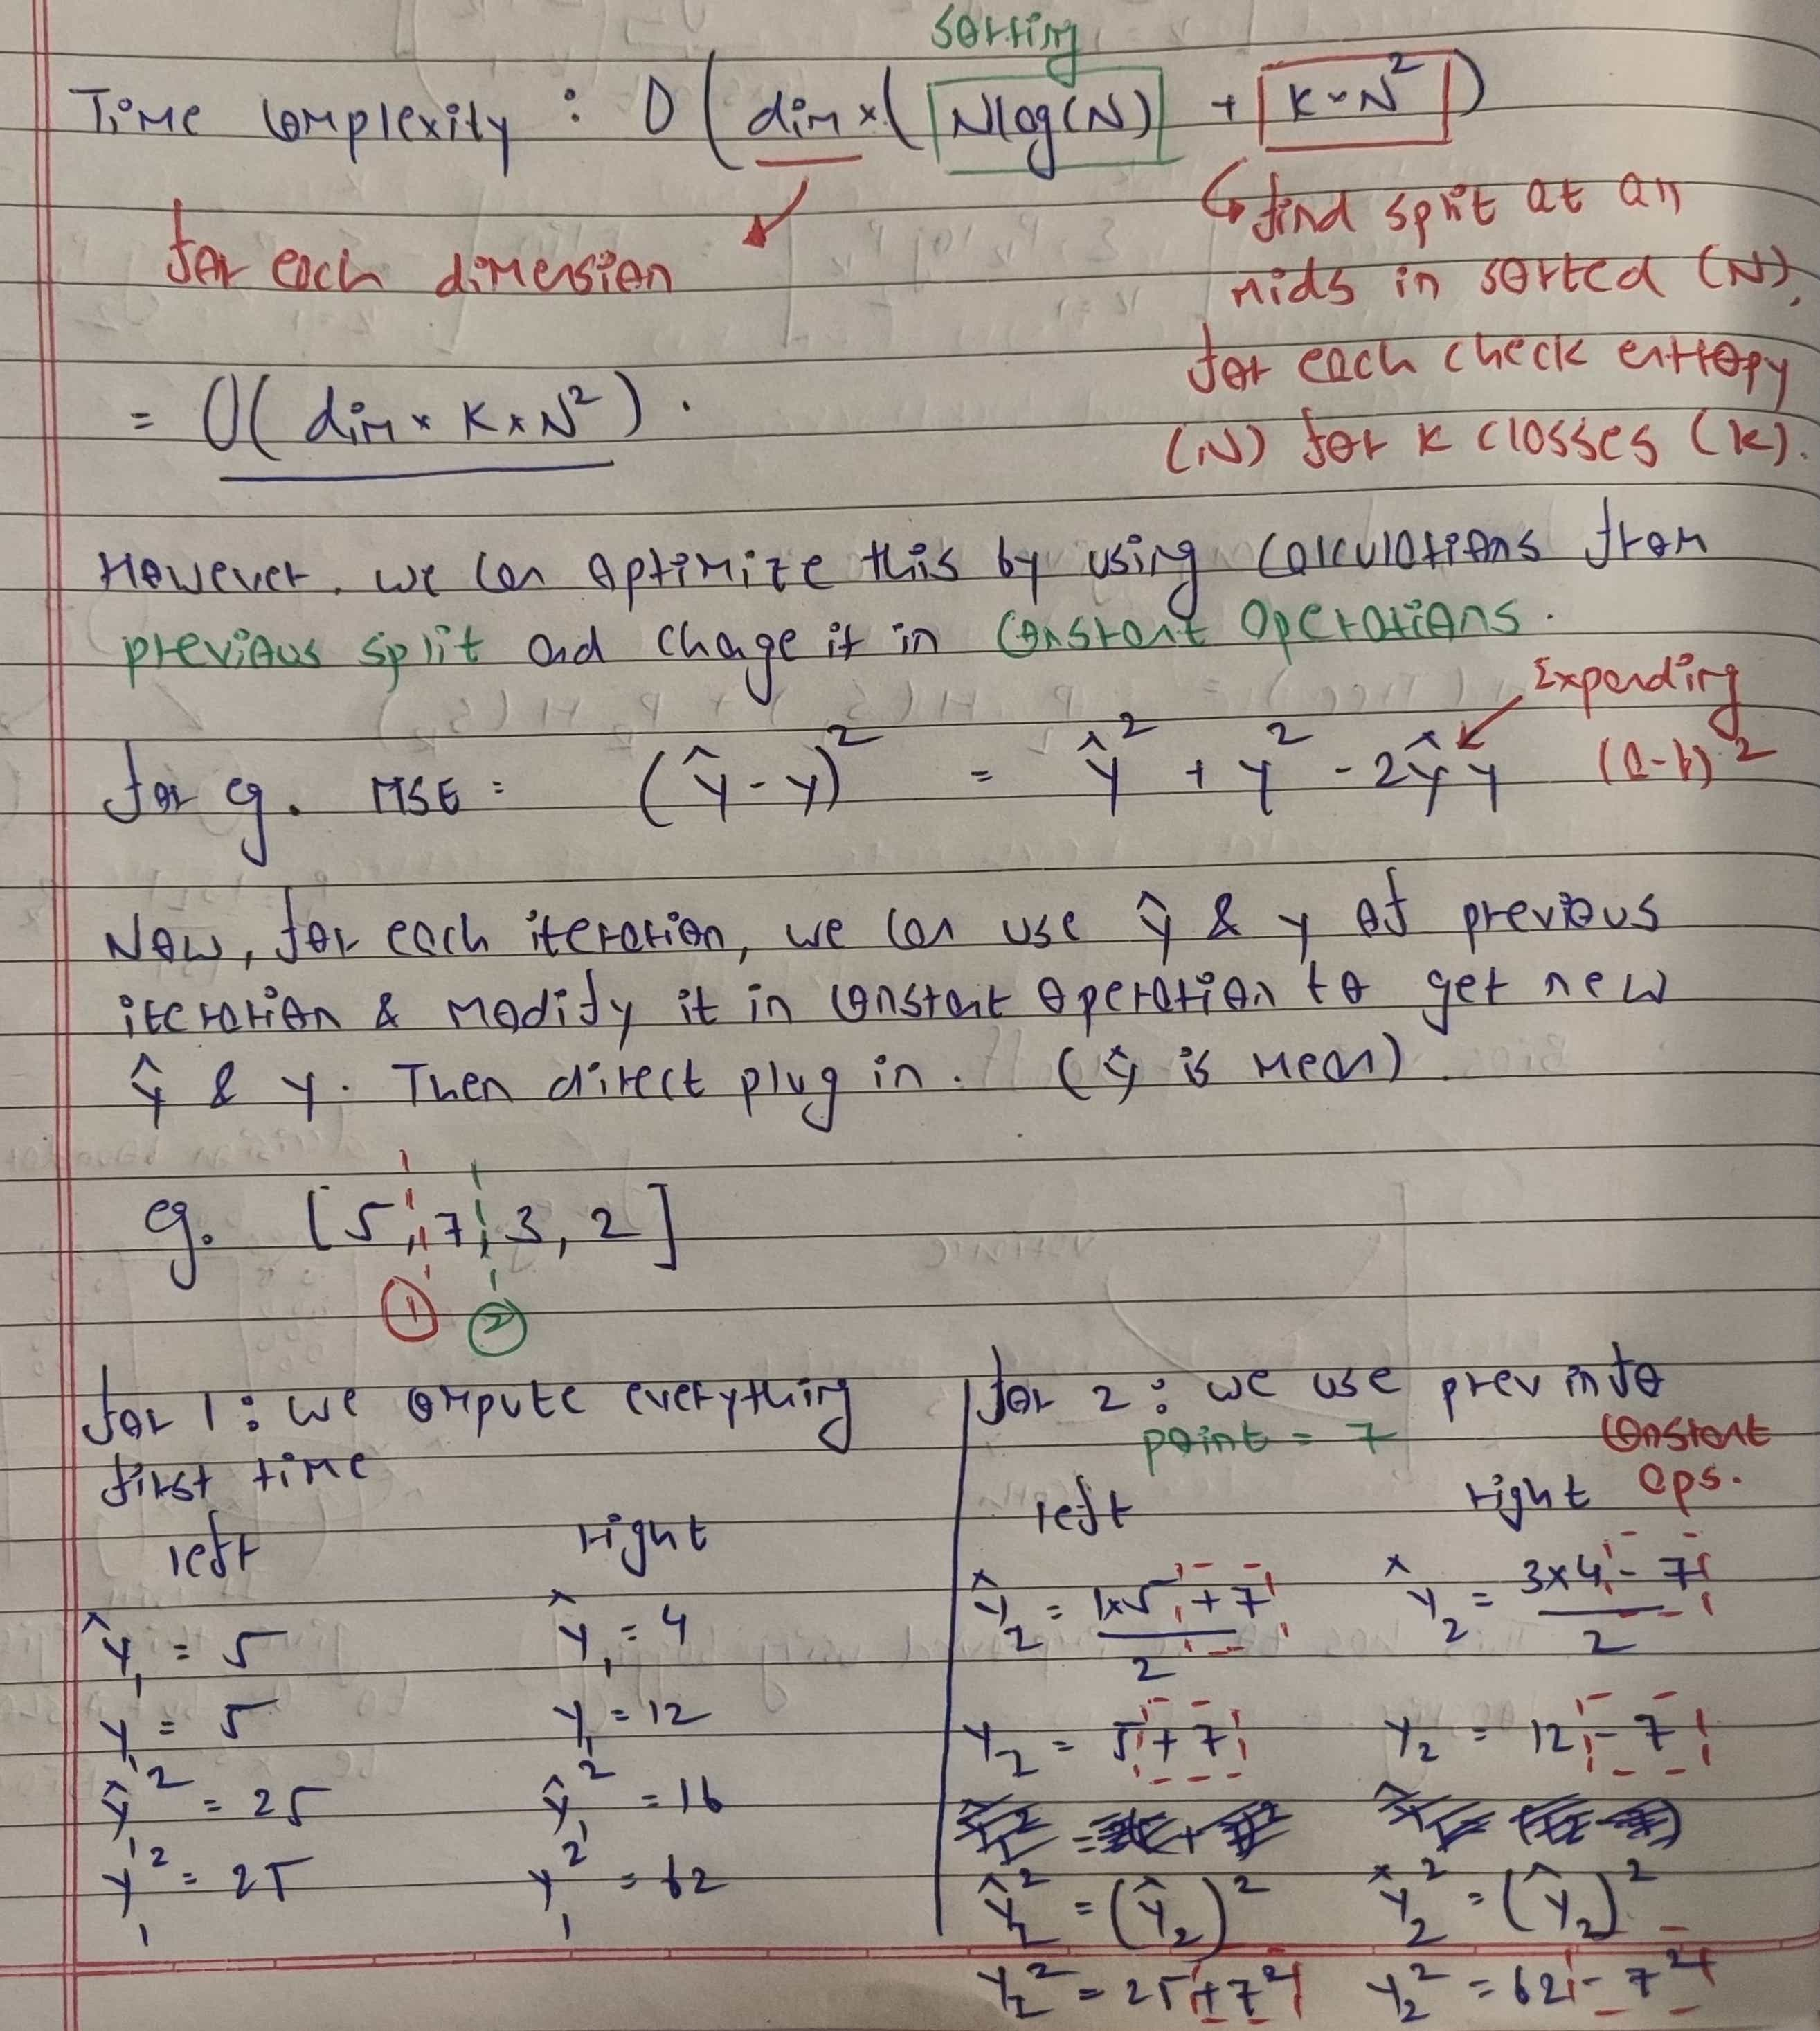 sorting
Time complexity : O ( dim × ( Nlog(N) + K × N² )
for each dimension
↳ find split at all
mids in sorted (N),
for each check entropy
(N) for K classes (K).
= O( dim × K × N² ) .
However, we can optimize this by using calculations from
previous split and chage it in constant operations.
Expanding
for eg. MSE : (ŷ - y)² = ŷ² + y² - 2ŷy (a-b)²
Now, for each iteration, we can use ŷ & y of previous
iteration & modify it in constant operation to get new
ŷ & y. Then direct plug in. (ŷ is mean)
eg. [5, 7, 3, 2]
① ②
for 1 : we compute everything
first time
left right
ŷ₁ = 5 ŷ₁ = 4
y₁ = 5 y₁ = 12
ŷ₁² = 25 ŷ₁² = 16
y₁² = 25 y₁² = 62
for 2 : we use prev info
point = 7
constant
ops.
left right
ŷ₂ = 1×5 + 7 / 2 ŷ₂ = 3×4 - 7 / 2
y₂ = 5 + 7 y₂ = 12 - 7
ŷ₂² = (ŷ₂)² ŷ₂² = (ŷ₂)²
y₂² = 25 + 7² y₂² = 62 - 7²